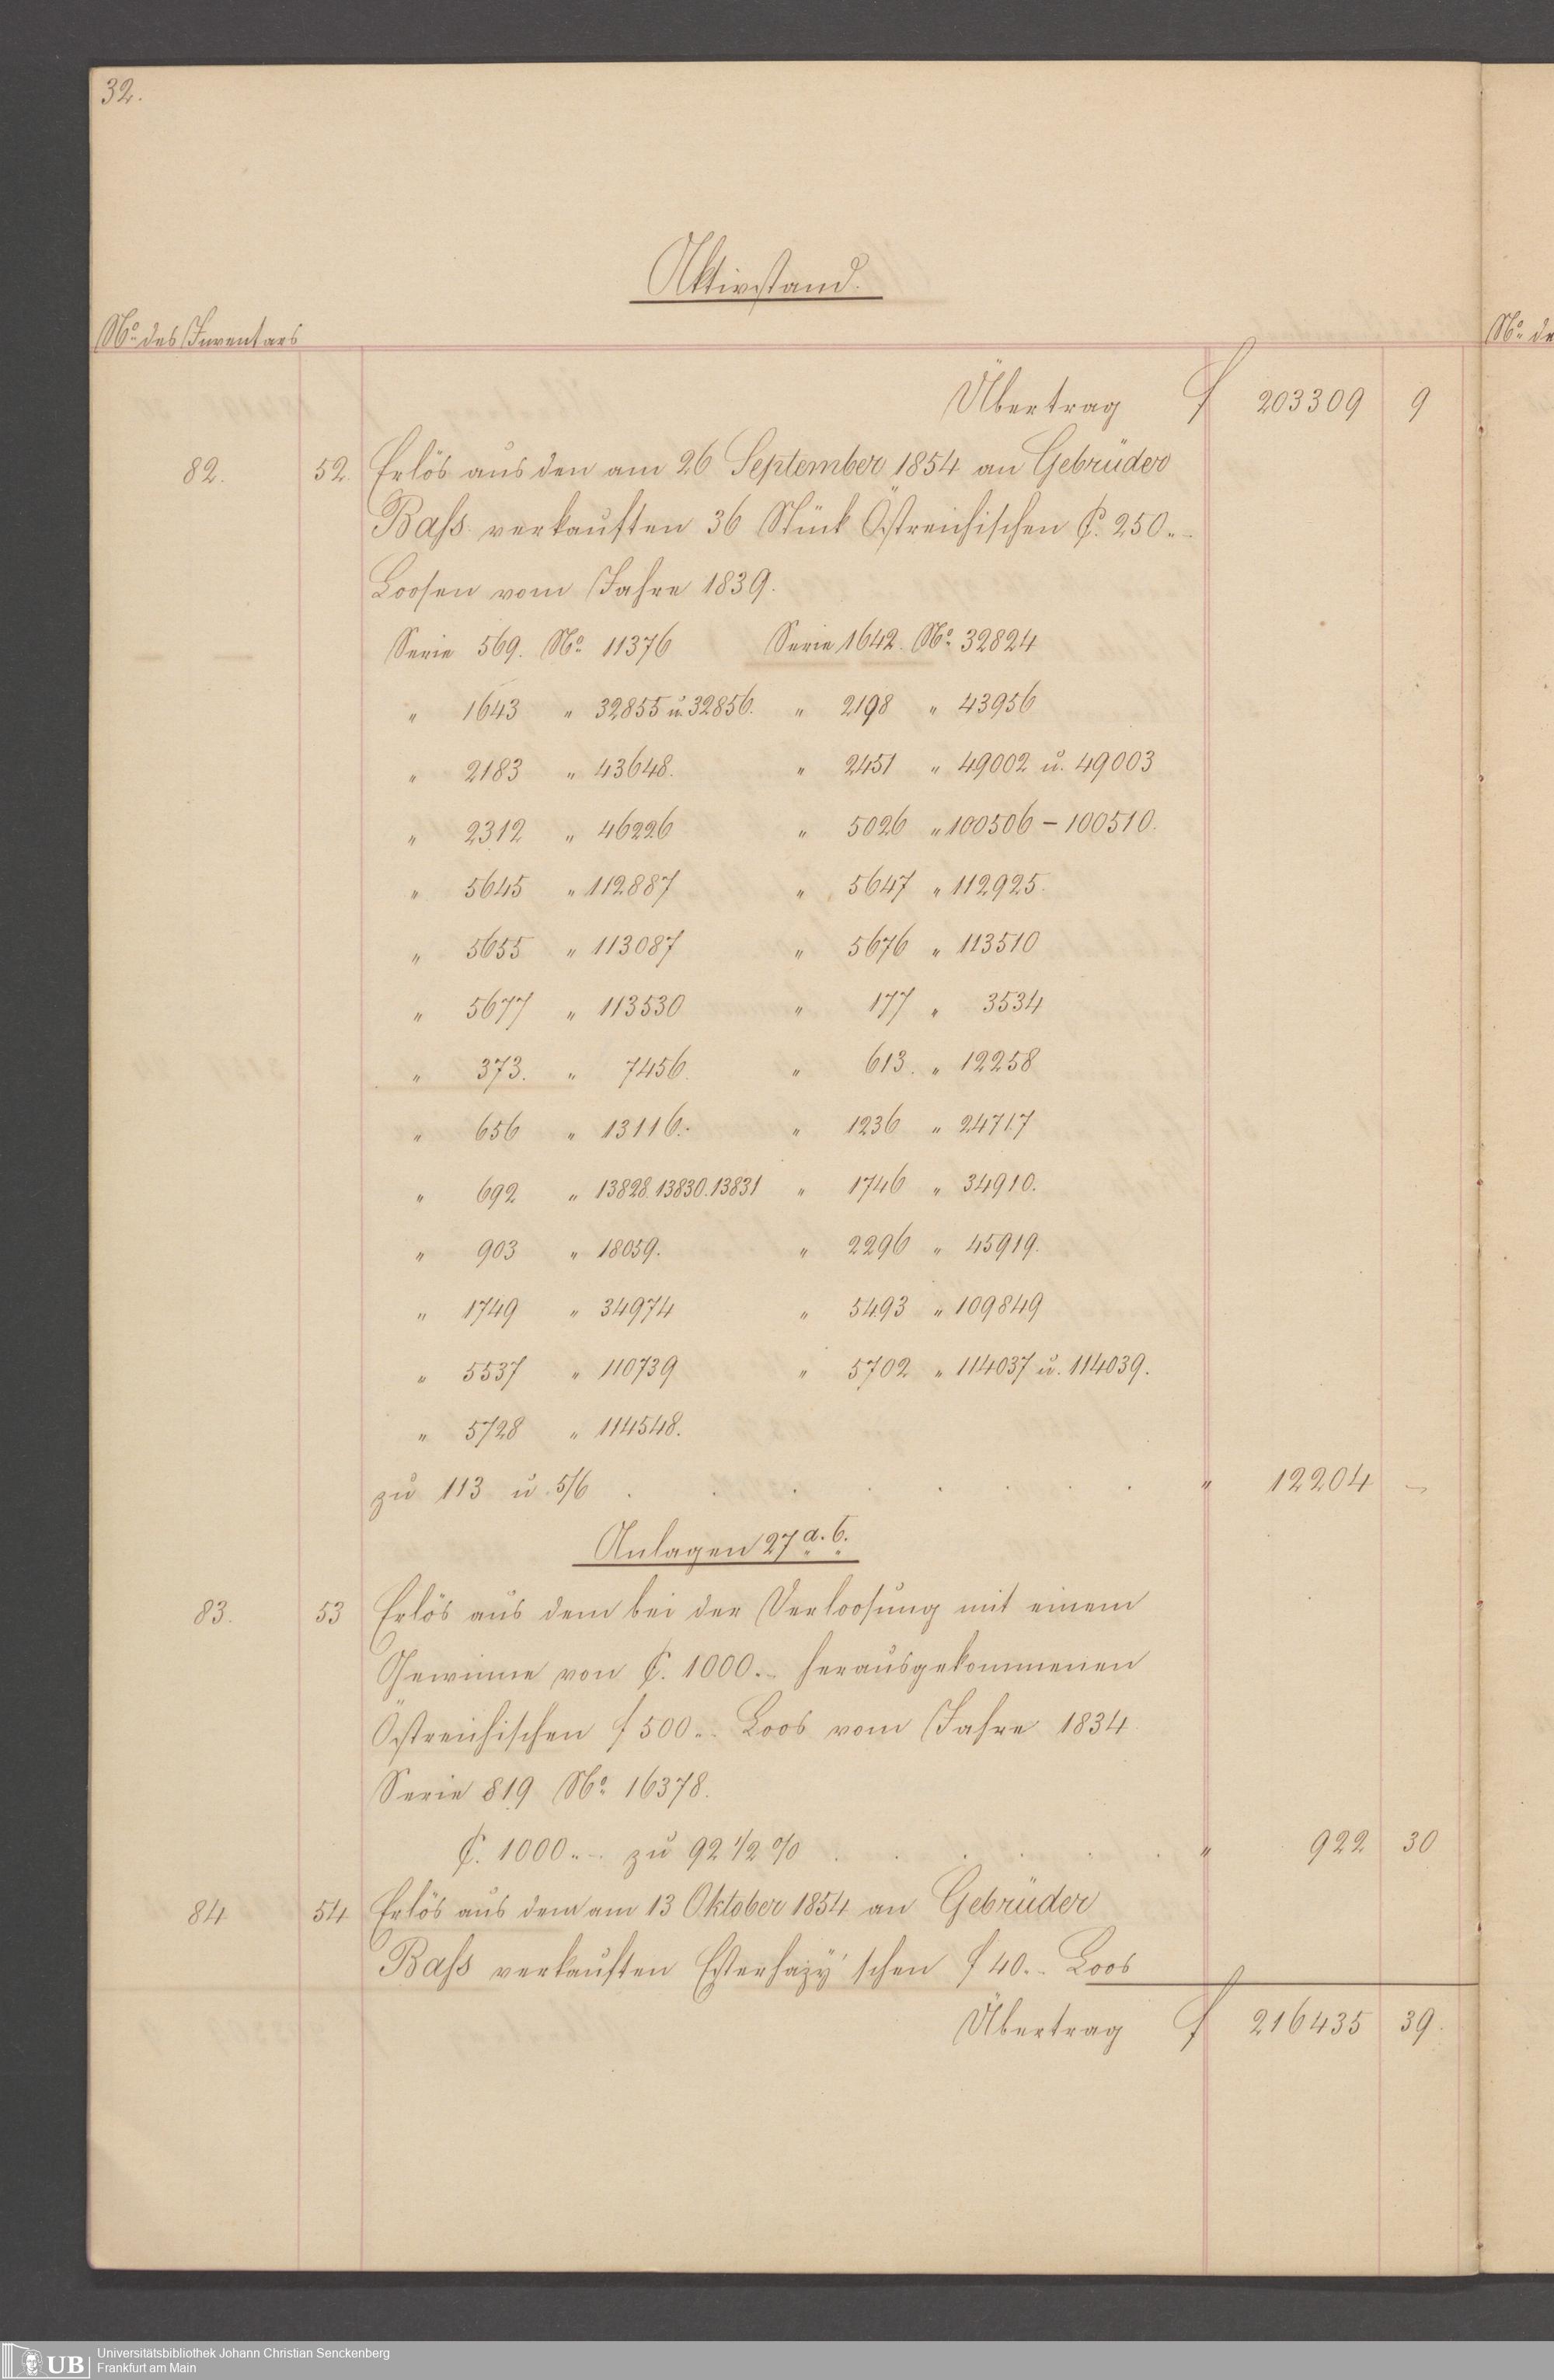 32.
Aktivstand.
No. des Inventars
No. de
Übertrag f 203309 9
82. 52. Erlös aus den am 26 September 1854 an Gebrüder
Baſs verkauften 36 Stück Östreichischen ₵. 250.-
Loosen vom Jahre 1839.
Serie 569. No. 11376 Serie 1642. No. 32824
" 1643 " 32855 u. 32856. " 2198 " 43956
" 2183 " 43648. " 2451 " 49002 u. 49003
" 2312 " 46226 " 5026 " 100506 - 100510.
" 5645 " 112887 " 5647 " 112925.
" 5655 " 113087 " 5676 " 113510
" 5677 " 113530 " 177 " 3534
" 373. " 7456. " 613. " 12258
" 656 " 13116. " 1236 " 24717
" 692 " 13828. 13830. 13831 " 1746 " 34910.
" 903 " 18059. " 2296 " 45919.
" 1749 " 34974 " 5493 " 109849
" 5537 " 110739 " 5702 " 114037 u. 114039.
" 5728 " 114548.
zu 113 u. 5/6 . . . . . . . . " 12204 -
Anlagen 27 a. b.
83. 53 Erlös aus dem bei der Verloosung mit einem
Gewinne von ₵. 1000.- herausgekommenen
Östreichischen f 500.- Loos vom Jahre 1834.
Serie 819 No. 16378.
₵. 1000.- zu 92 1/2 % . . . . . . " 922 30
84 54 Erlös aus dem am 13 Oktober 1854 an Gebrüder
Baſs verkauften Esterhazy'schen f 40.- Loos
Übertrag f 216435 39.
UB Universitätsbibliothek Johann Christian Senckenberg
Frankfurt am Main